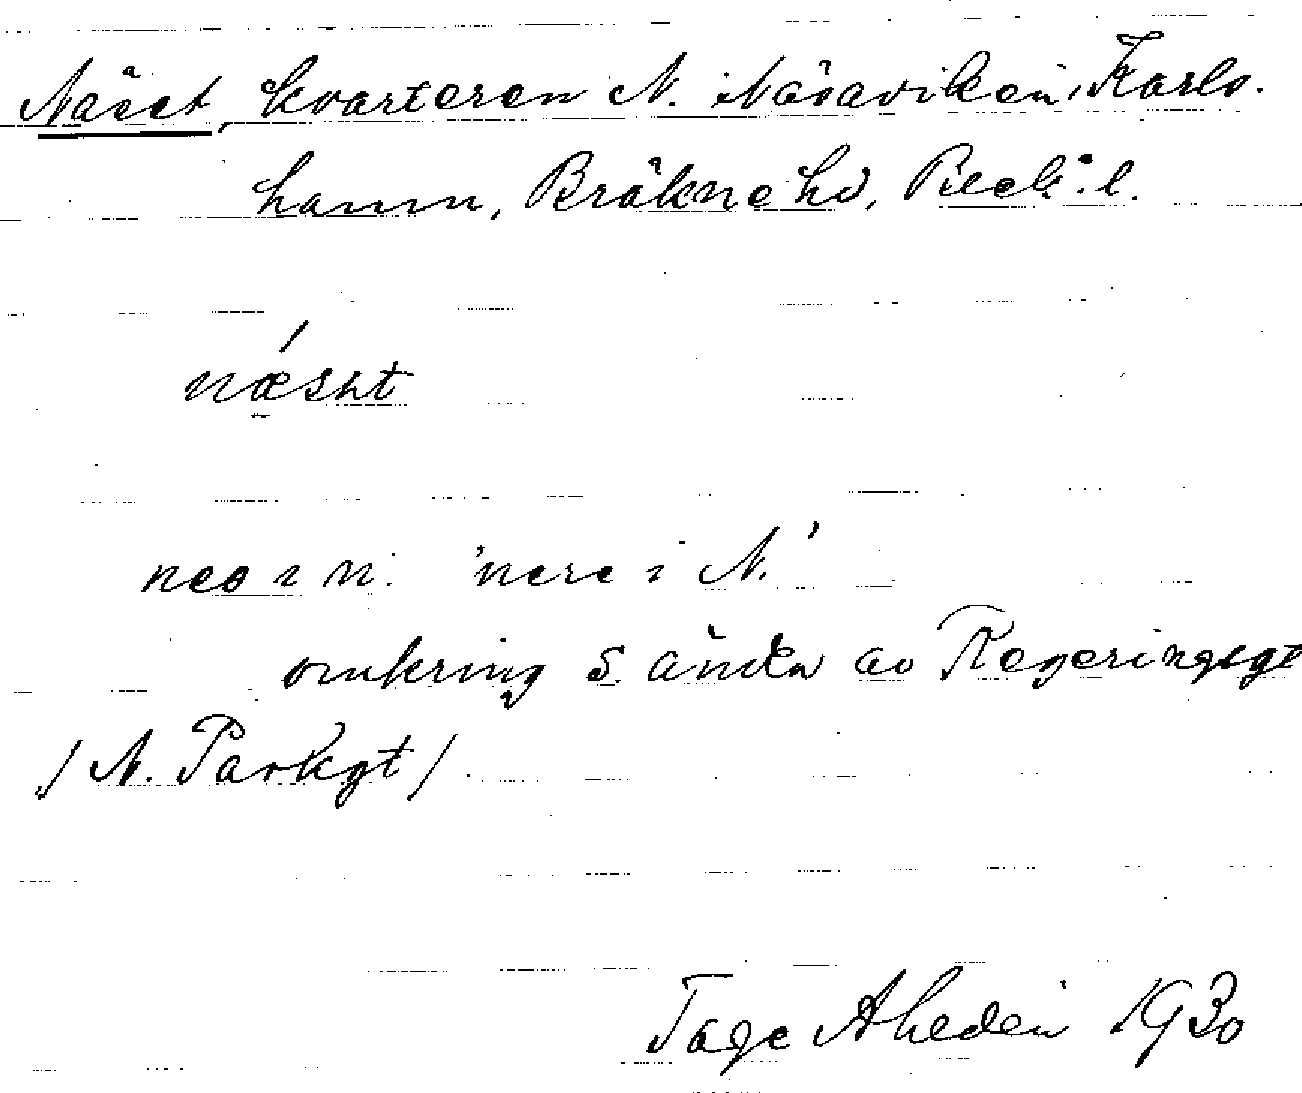 Näset, kvarteren N. Näsaviken, Karls-
hamn, Bräkne hd, Blek. l.
næsət
neo i N. 'nere i N.'
omkring S. ändan av Regeringsgt
/N. Parkgt/
Tage Ahedén 1930